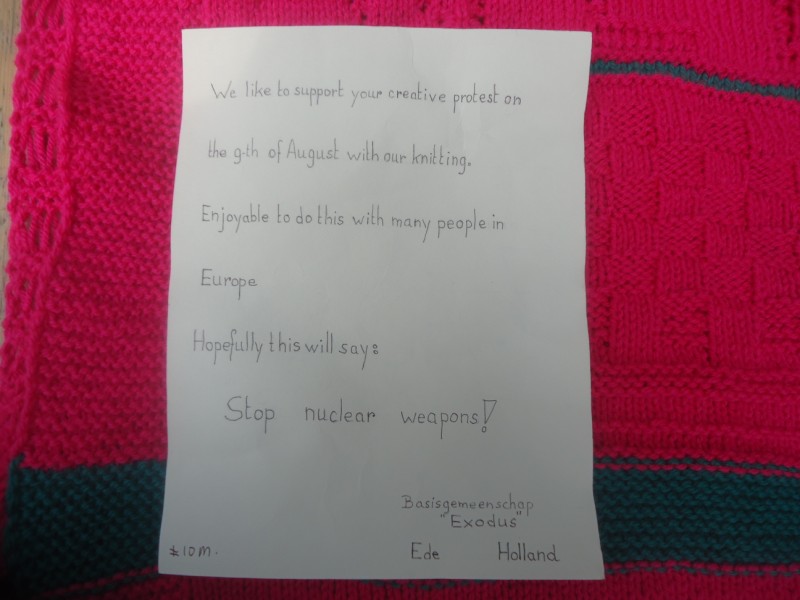 We like to support your creative protest on
the 9-th of August with our knitting.
Enjoyable to do this with many people in
Europe
Hopefully this will say:
Stop nuclear weapons!
Basisgemeenschap
"Exodus"
± 10 M. Ede Holland